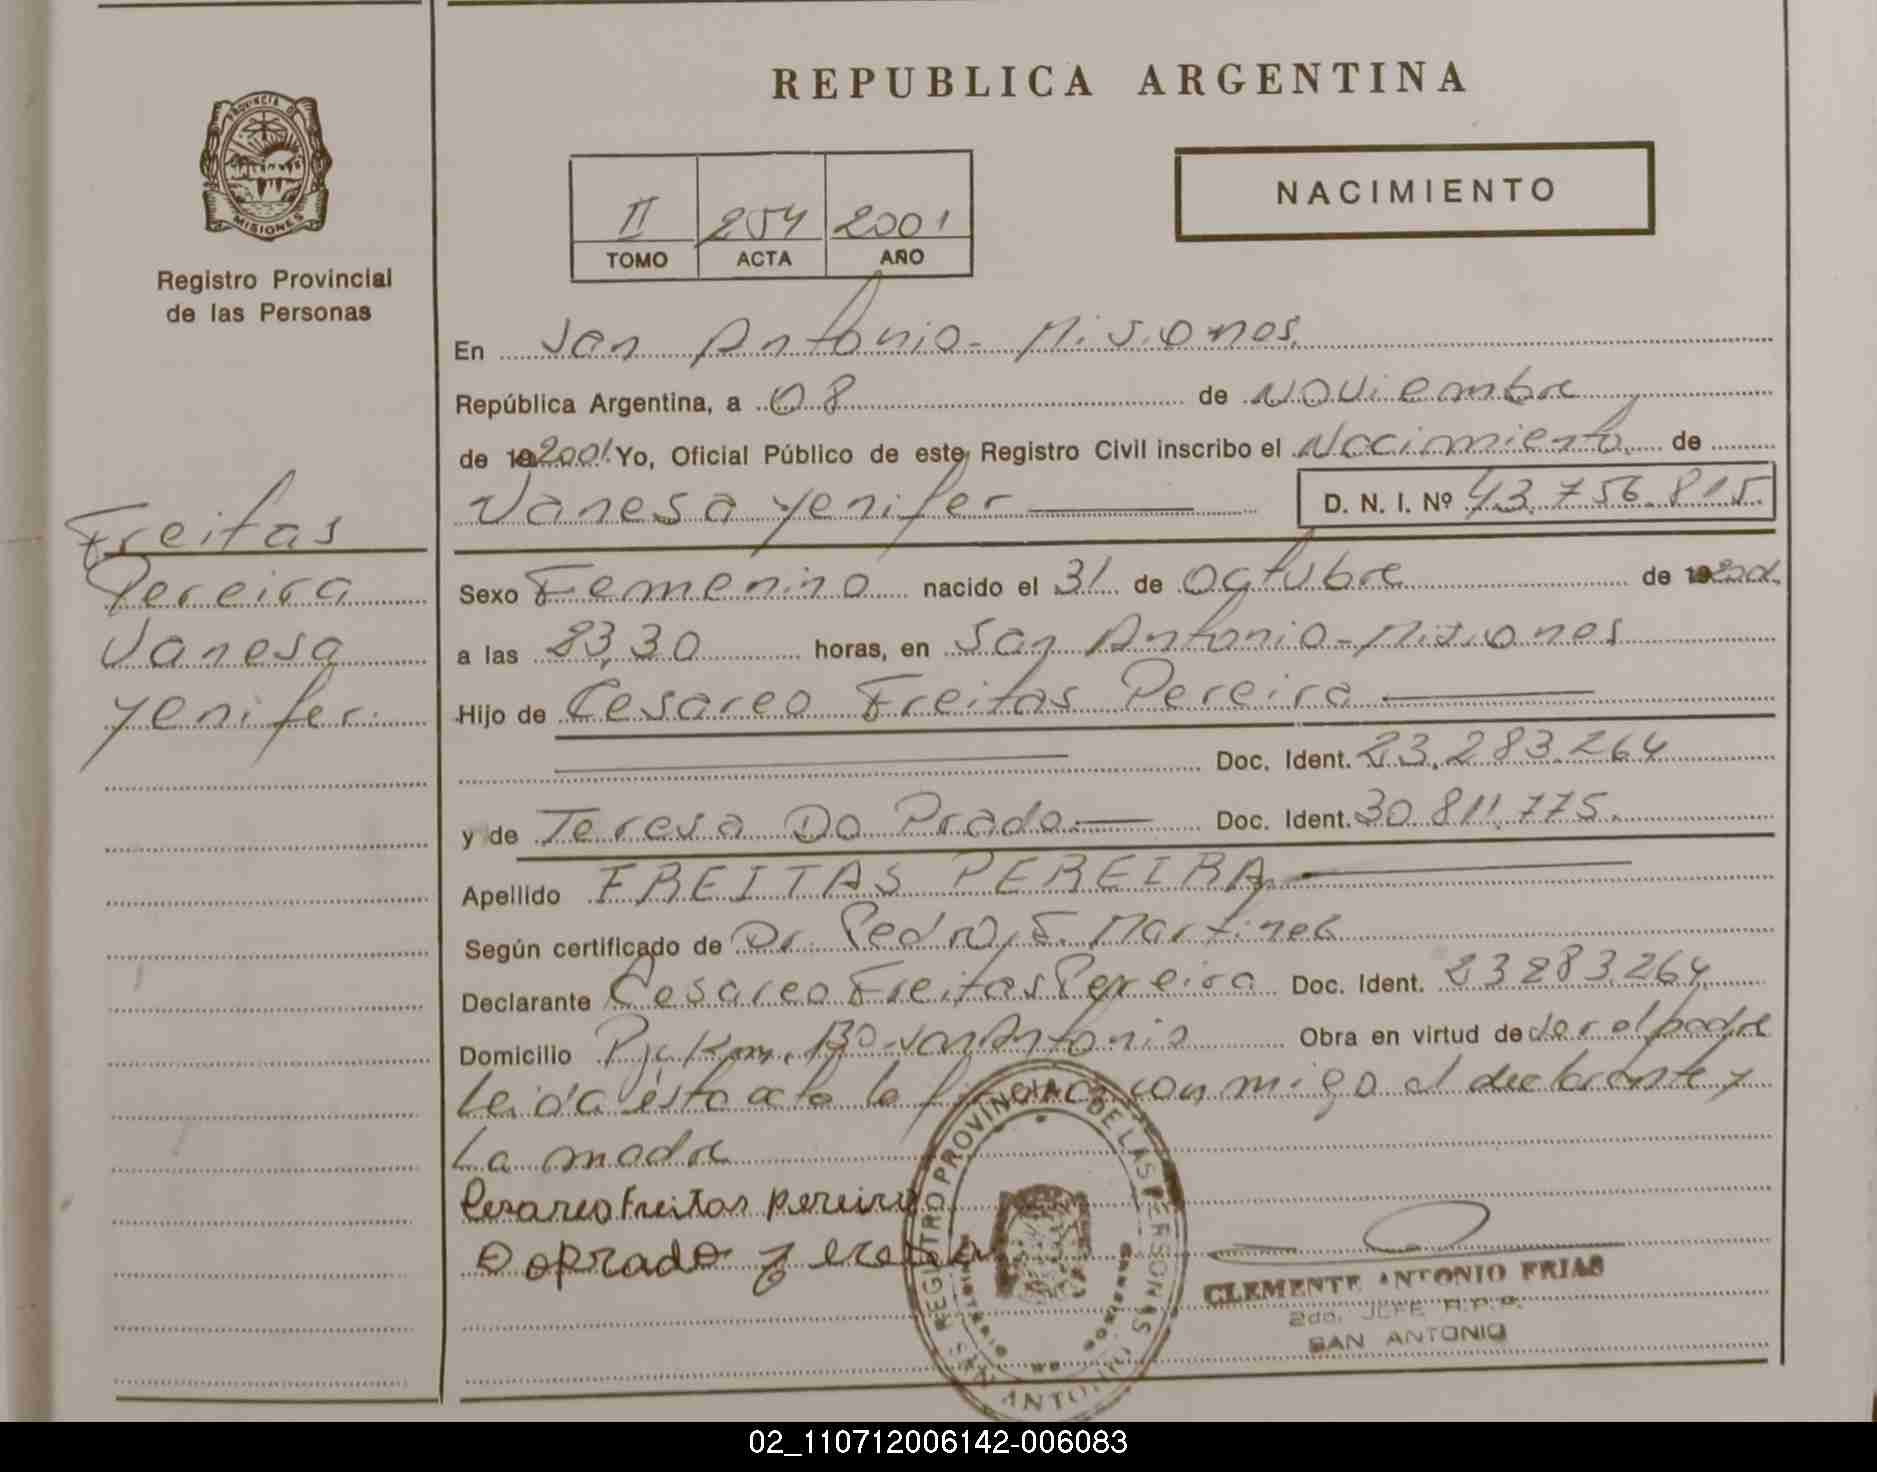 REPUBLICA ARGENTINA
PROVINCIA DE
MISIONES
Registro Provincial
de las Personas
II 254 2001
TOMO ACTA AÑO
NACIMIENTO
En San Antonio - Misiones.
República Argentina, a 08 de Noviembre
de 192001. Yo, Oficial Público de este Registro Civil inscribo el Nacimiento de
Vanesa Yenifer D. N. I. Nº 43.756.815.
Freitas
Pereira
Vanesa
Yenifer.
Sexo Femenino nacido el 31 de Octubre de 192001.
a las 23,30 horas, en San Antonio - Misiones
Hijo de Cesareo Freitas Pereira
Doc. Ident. 23.283.264
y de Teresa Do Prado. Doc. Ident. 30.811.775.
Apellido FREITAS PEREIRA
Según certificado de Dr. Pedro E. Martinez
Declarante Cesareo Freitas Pereira Doc. Ident. 23283.264
Domicilio San Antonio Obra en virtud de ser el padre
Leida ésta acta la firma conmigo el declarante y
La madre
Cesareo Freitas Pereira
Doprado Teresa
REGISTRO PROVINCIAL DE LAS PERSONAS
SAN ANTONIO
MISIONES
CLEMENTE ANTONIO FRIAS
2do. JEFE R.P.P.
SAN ANTONIO
02_110712006142-006083